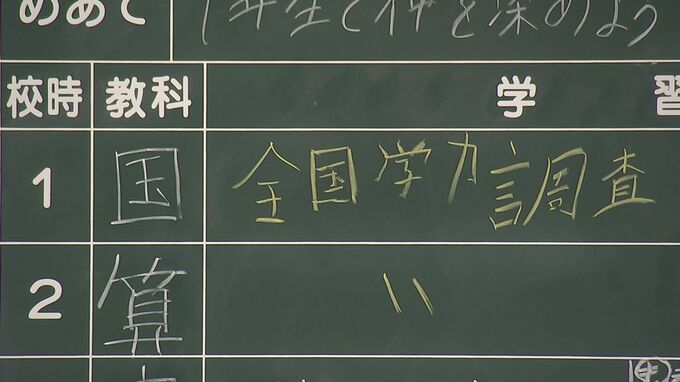 めあて 1年生で仲を深めよう
校時 教科 学習
1 国 全国学力調査
2 算 〃